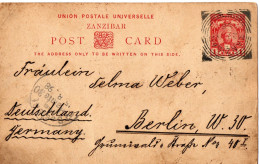 UNION POSTALE UNIVERSELLE
ZANZIBAR
POST CARD
THE ADDRESS ONLY TO BE WRITTEN ON THIS SIDE.
Fräulein
Selma Weber,
Deutschland.
Germany.
Berlin, W. 30
Grunwald's Straße No 48 I